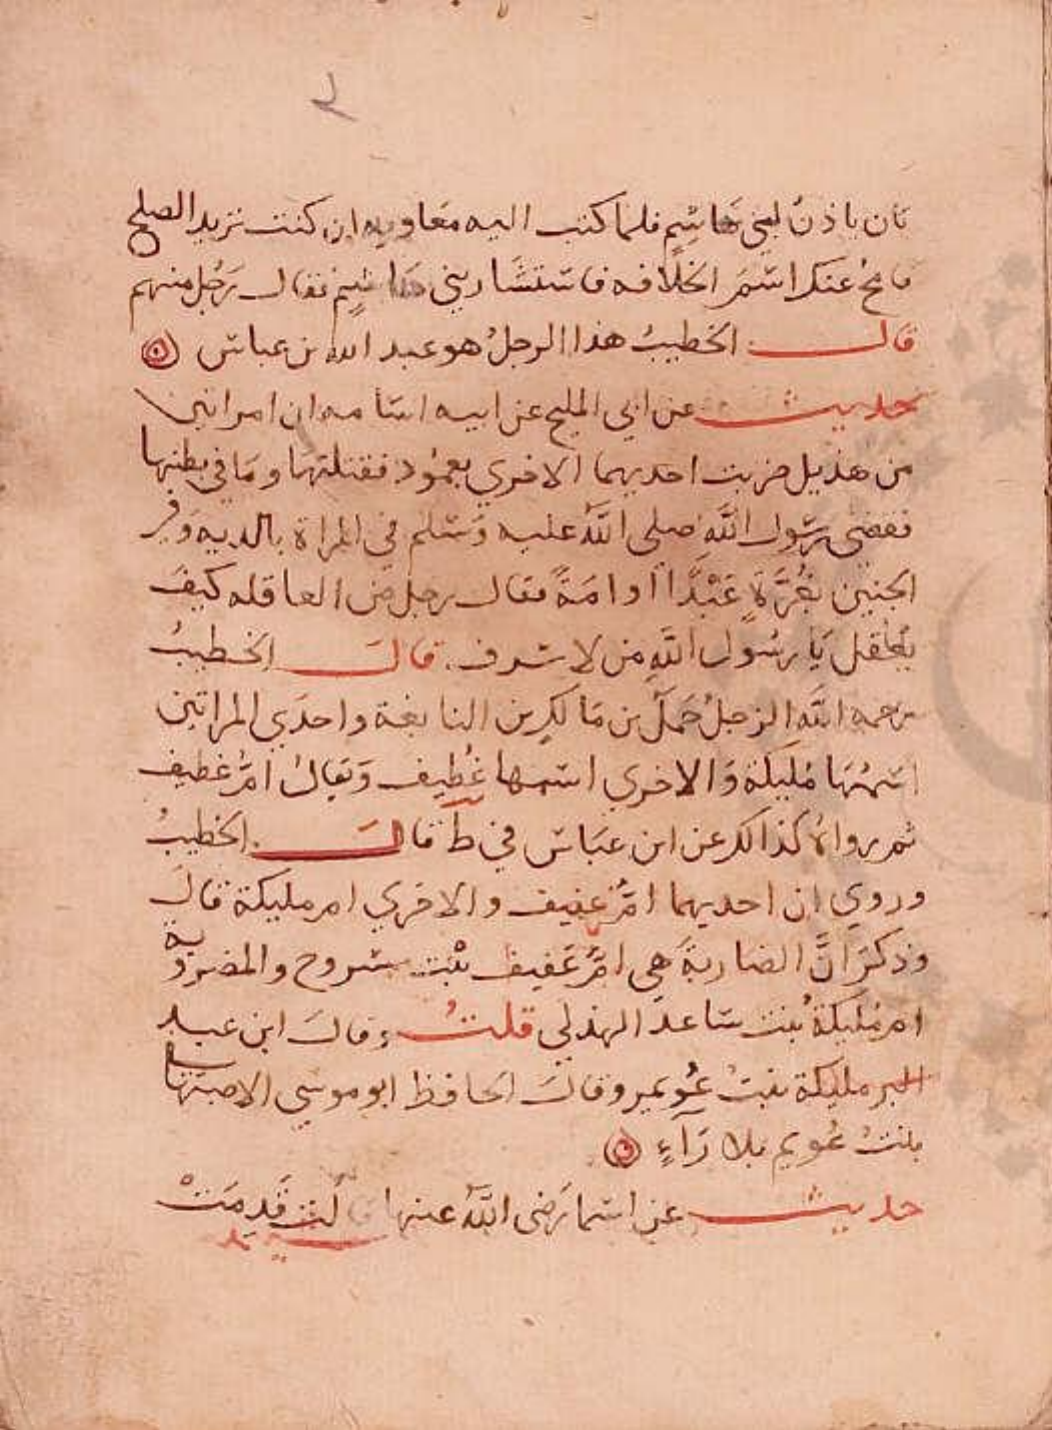 بان ياذن لبني هاشم فلما كتب اليه معاويه ان كنت تريد الصلح
فامح عنك اسم الخلافه فاستشار بني هاشم فقال رجل منهم
قال الخطيبُ هذا الرجلُ هو عبد الله بن عباس
حديث عن ابي المليح عن ابيه اسامه ان امراتين
من هذيل ضربت احديهما الاخري بعمود فقتلتها وما في بطنها
فقضي رسول اللهِ صلي الله عليه وسلم في المراة بالديه وفي
الجنين بغُرَّةٍ عَبْدًا او امَةً فقال رجل من العاقله كيف
يُعقل يا رسُول اللهِ من لا شرف قال الخطيبُ
رحمه الله الرجلُ حَمَلُ بن مَالك بن النابغة واحدَي المراتين
اسمُهَا مُليكة وَالاخري اسمها غُطيف وَيقالُ امُّ غطيف
ثم رواهُ كذالك عن ابن عبَاس في ط قالَ الخطيبُ
وروي ان احديهما امُّ عفيف والاخري ام مليكة قالَ
وذكرَ انَّ الضاربةَ هي امُّ عَفيف بنْت مسروح والمضروبة
ام مُليكة بُنت سَاعدَ الهذلي قلتُ وقالَ ابن عبد
البر مليكة بنتُ عُويمر وقالَ الحافظ ابو موسي الاصبهاني
بنتُ عُويم بلا رَآءٍ
حديث عن اسما رَضي اللهُ عنها قالت قَدِمَتْ